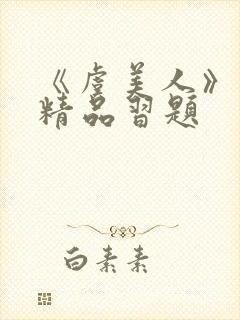 《虞美人》
精品习题
白素素